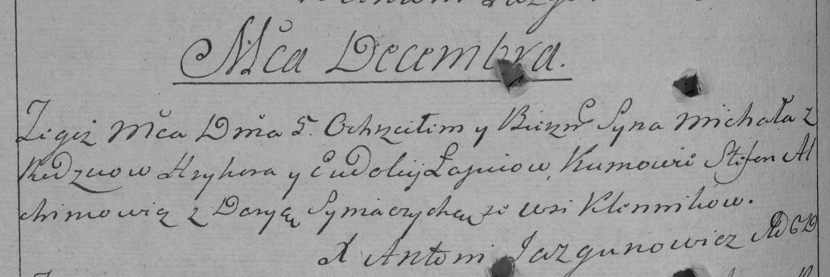 Mca Decembra.
Tegoż Mca Dnia 5. Ochrzciłem y Bierzm Syna Michała z
Rodzicow Hryhora y Eudokij Łapciow, Kumowie Stefan Al
chimowicz z Daryą Symaczychą ze wsi Klennikow.
X Antoni Jazgunowicz